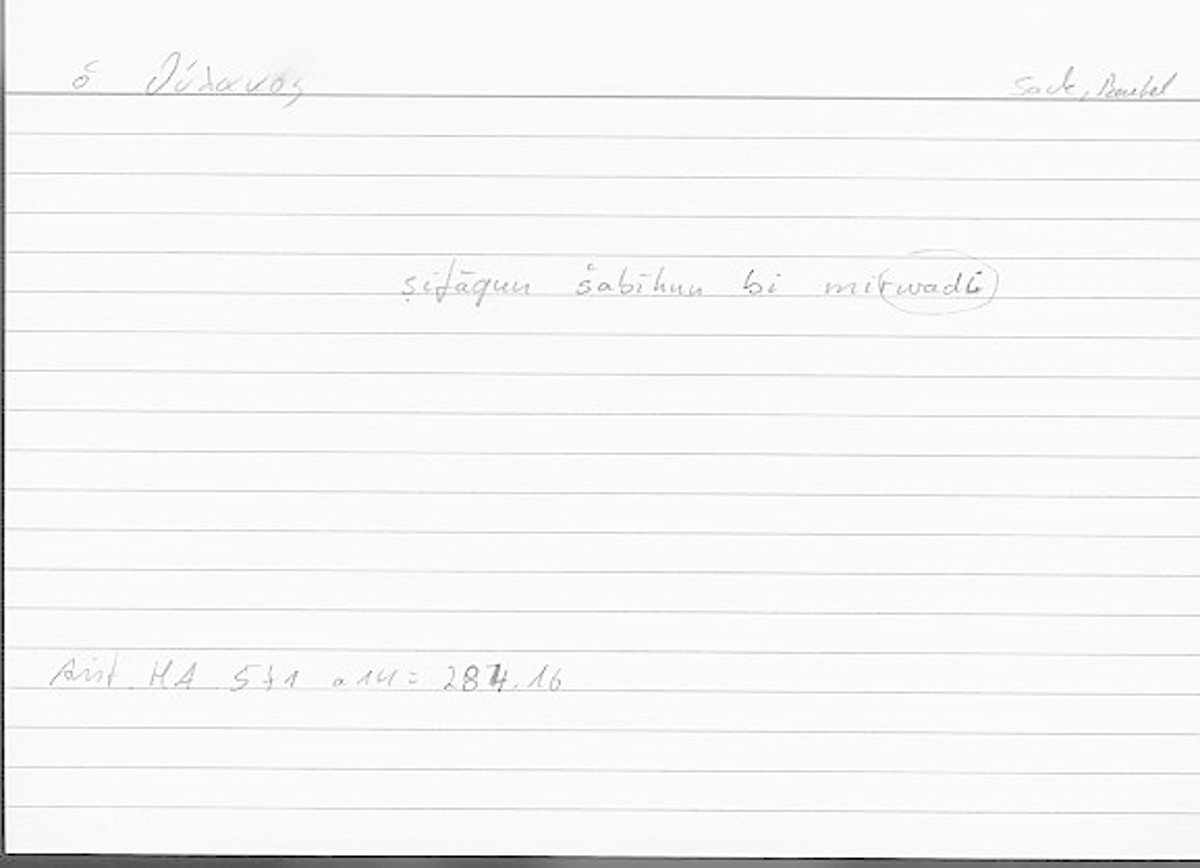 ὁ θύλακος Sack, Beutel
ṣifāqun šabīhun bi mirwadi
Arist. HA 571 a 14 = 284.16